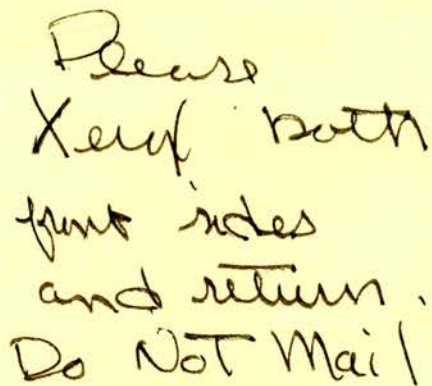 Please
Xerox both
front sides
and return.
Do Not Mail